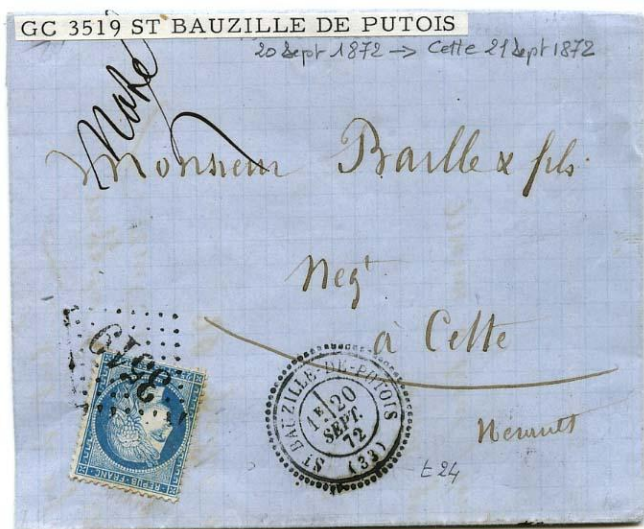 GC 3519 ST BAUZILLE DE PUTOIS
20 Sept 1872 → Cette 21 Sept 1872
Monsieur Baille & fils
Negt
à Cette
Herault
3519
REPUB · FRANC
ST BAUZILLE-DE-PUTOIS (33)
1E 20
SEPT.
72
E24